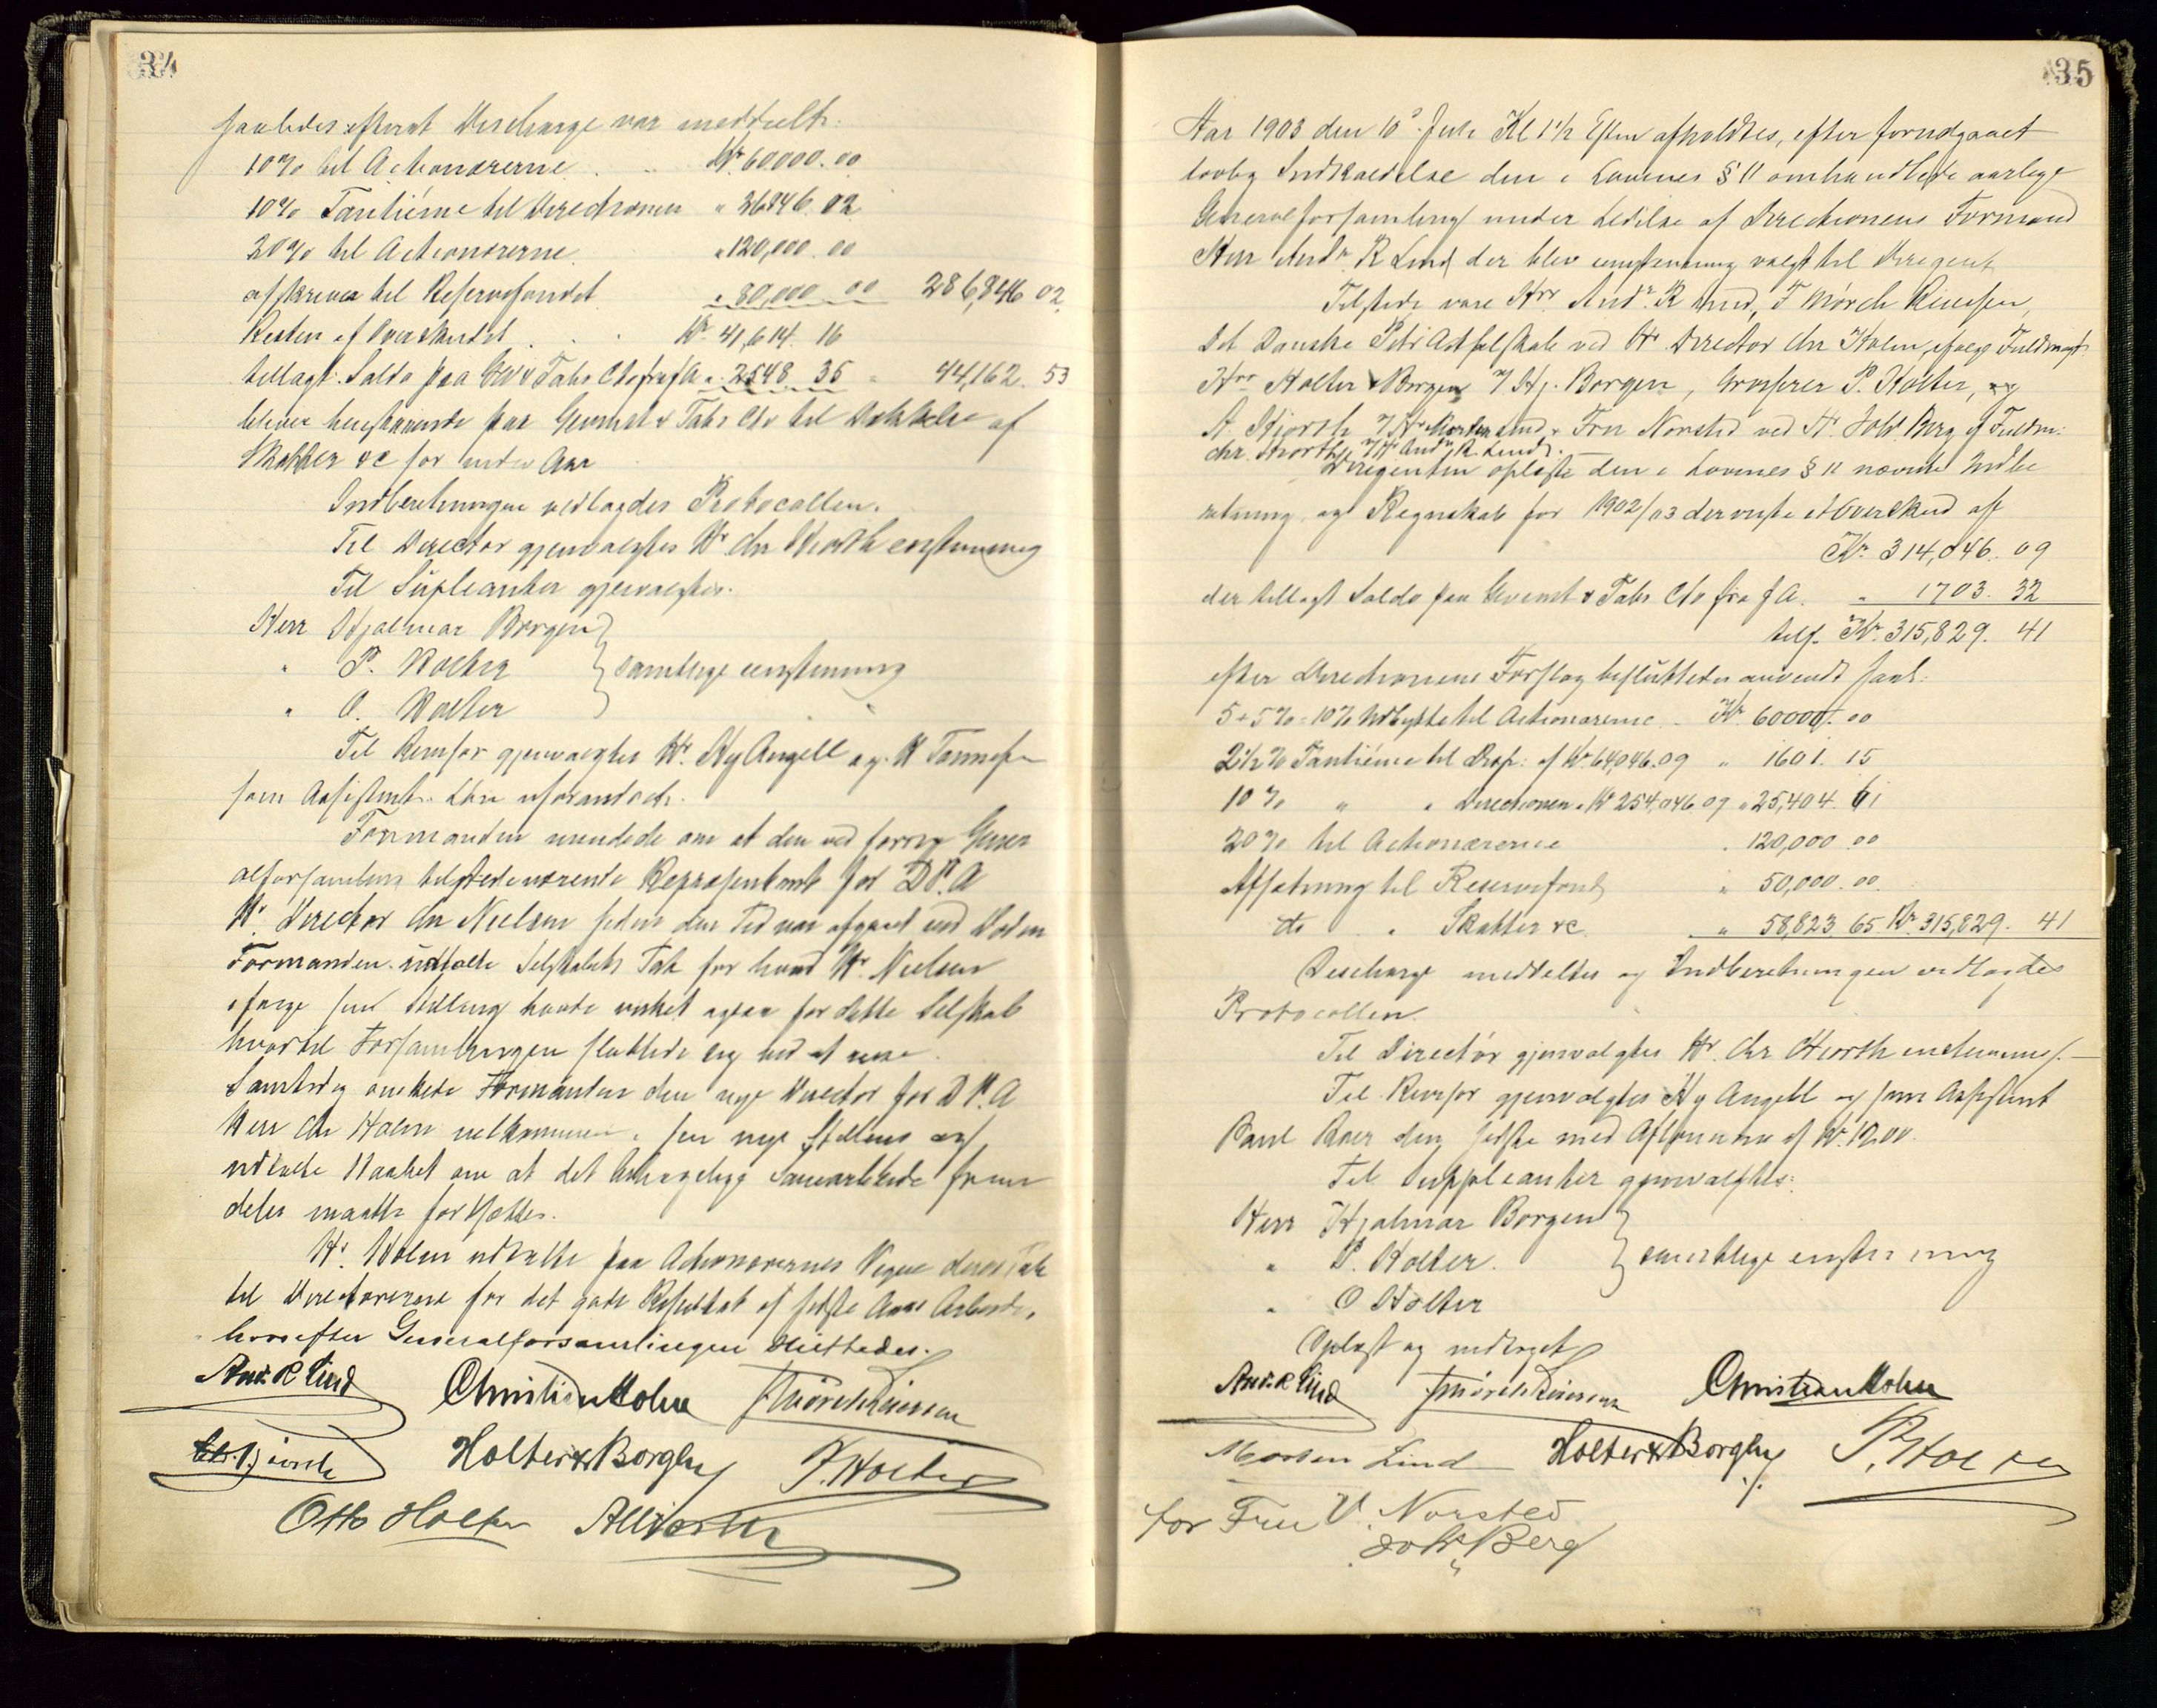 34
saaledes efterat Decharge var meddelt:
10% til Actionærerne . . Kr. 60000.00
10% Tantiéme til Directionen " 26846.02
20% til Actionærerne. " 120,000.00
afskrives til Reservefondet " 80,000 00 286,846 02
Resten af Overskudet . . . Kr. 41,614. 16
tillagt Saldo paa Gev & Tabs Cto fra f A " 2548. 35 " 44,162. 53
bliver henstaaende paa Gevinst & Tabs Cto til Dækkelse af
Skatter &c for indev. Aar
Indberetningen vedlagdes Protocollen.
Til Director gjenvalgtes Hr. Chr Hiorth enstemmig
Til Supleanter gjenvalgtes.
Herr Hjalmar Borgen
" P. Holter } samtlige enstemmig
" O. Holter
Til Revisor gjenvalgtes Hr. Hy Angell og H
som Assistent. Løn uforandret.
Formanden mindede om at den ved forrige Gener
alforsamling tilstedeværende Repræsentant for D.P.A
Hr. Director Chr Nielsen siden den Tid var afgaaet ved Døden
Formanden udtalte Selskabets Tak for hvad Hr. Nielsen
ifølge sin Stilling havde virket ogsaa for dette Selskab
hvortil Forsamlingen sluttede sig ved at reise
Samtidig ønskede Formanden den nye Director for D.P.A
Herr Chr Holm velkommen i sin nye Stilling og
udtalte Haabet om at det behagelige Samarbeide frem
deles maatte fortsættes.
Hr. Holm udtalte paa Actionærernes Vegne deres Tak
til Directørerne for det gode Resultat af sidste Aars Arbeide,
hvorefter Generalforsamlingen sluttedes.
And. R Lind Christian Holm F Mørch Reiersen
Chr. Hiorth Holter & Borgen P. Holter
Otto Holter A Hiorth
35
Aar 1903 den 10de Juli Kl 1½ Eftm afholdtes, efter forudgaaet
lovlig Indkaldelse den i Lovenes § 11 omhandlede aarlige
Generalforsamling under Ledelse af Directionens Formand
Herr Andr. R Lind der blev enstemmig valgt til Dirigent
Tilstede vare Hrr Andr. R Lind, F Mørch Reiersen,
Det Danske Petr Actselskab ved Hr Director Chr Holm, ifølge Fuldmagt
Hrr Holter & Borgen v/ Hj. Borgen, Grosserer P. Holter, og
A. Hiorth v/ Hr Morten Lind, Fru Norsted ved Hr. Joh. Berg if Fuldm:
Chr. Hiorth v/ Hr Andr R. Lind.
Dirigenten oplæste den i Lovenes § 11 nævnte Indbe
retning og Regnskab for 1902/03 der viste et Overskud af
Kr 314,046. 09
der tillagt Saldo paa Gevinst & Tabs Cto fra f A. " 1703. 32
tils. Kr. 315,829. 41
efter Directionens Forslag besluttedes anvendt saal:
5 + 5% = 10% Udbytte til Actionærerne . Kr 60000.00
2½% Tantiéme til Disp: af Kr. 64,046.09 " 1601. 15
10% " " Directionen " Kr 254,046.09 " 25,404. 61
20% til Actionærerne " 120,000.00
Afsætning til Reservefond " 50,000.00.
do " Skatter &c. " 58,823 65 Kr. 315,829. 41
Decharge meddeltes og Indberetningen vedlagdes
Protocollen.
Til Directør gjenvalgtes Hr. Chr Hiorth enstemmig.
Til Revisor gjenvalgtes Hy Angell og som Assistent
Paul den sidste med Aflønning af Kr. 1200.
Til Suppleanter gjenvalgtes:
Herr Hjalmar Borgen
" P. Holter. } samtlige enstemmig
" O Holter
Oplæst og vedtaget
And. R Lind F Mørch Reiersen Christian Holm
Morten Lind Holter & Borgen P. Holter
for Frue V. Norsted
Joh. Berg